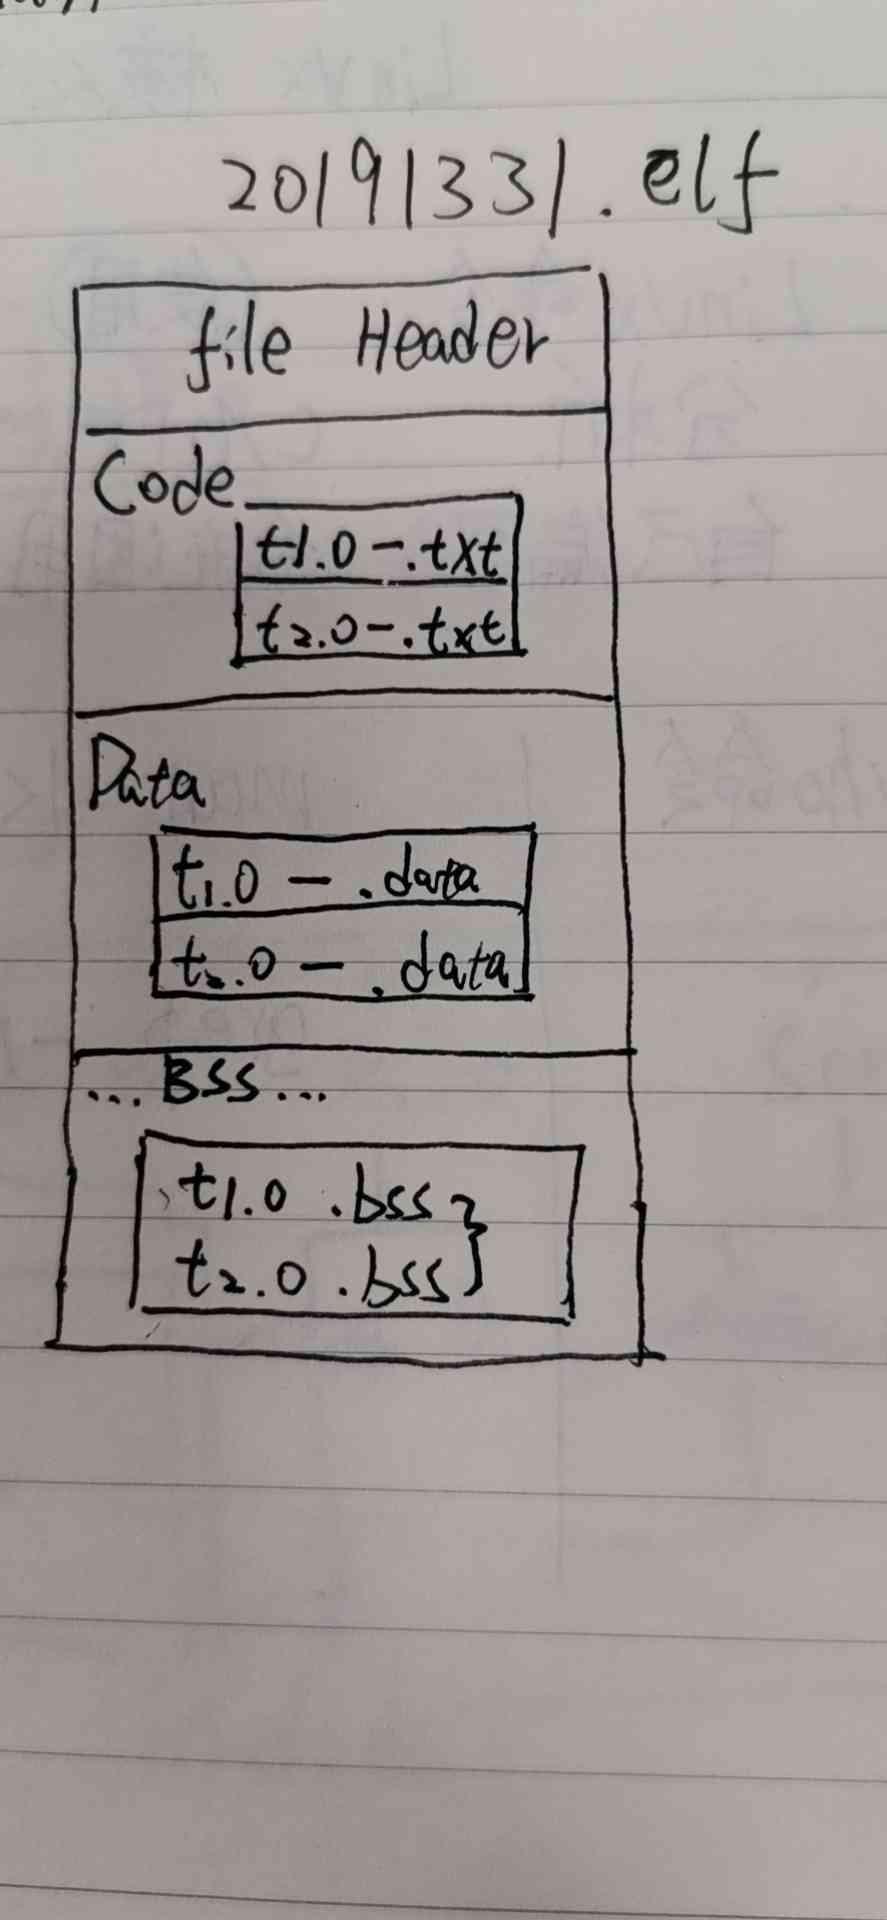 20191331.elf
file Header
Code
t1.0 - .txt
t2.0 - .txt
Data
t1.0 - .data
t2.0 - .data
... BSS ...
t1.0 .bss }
t2.0 .bss